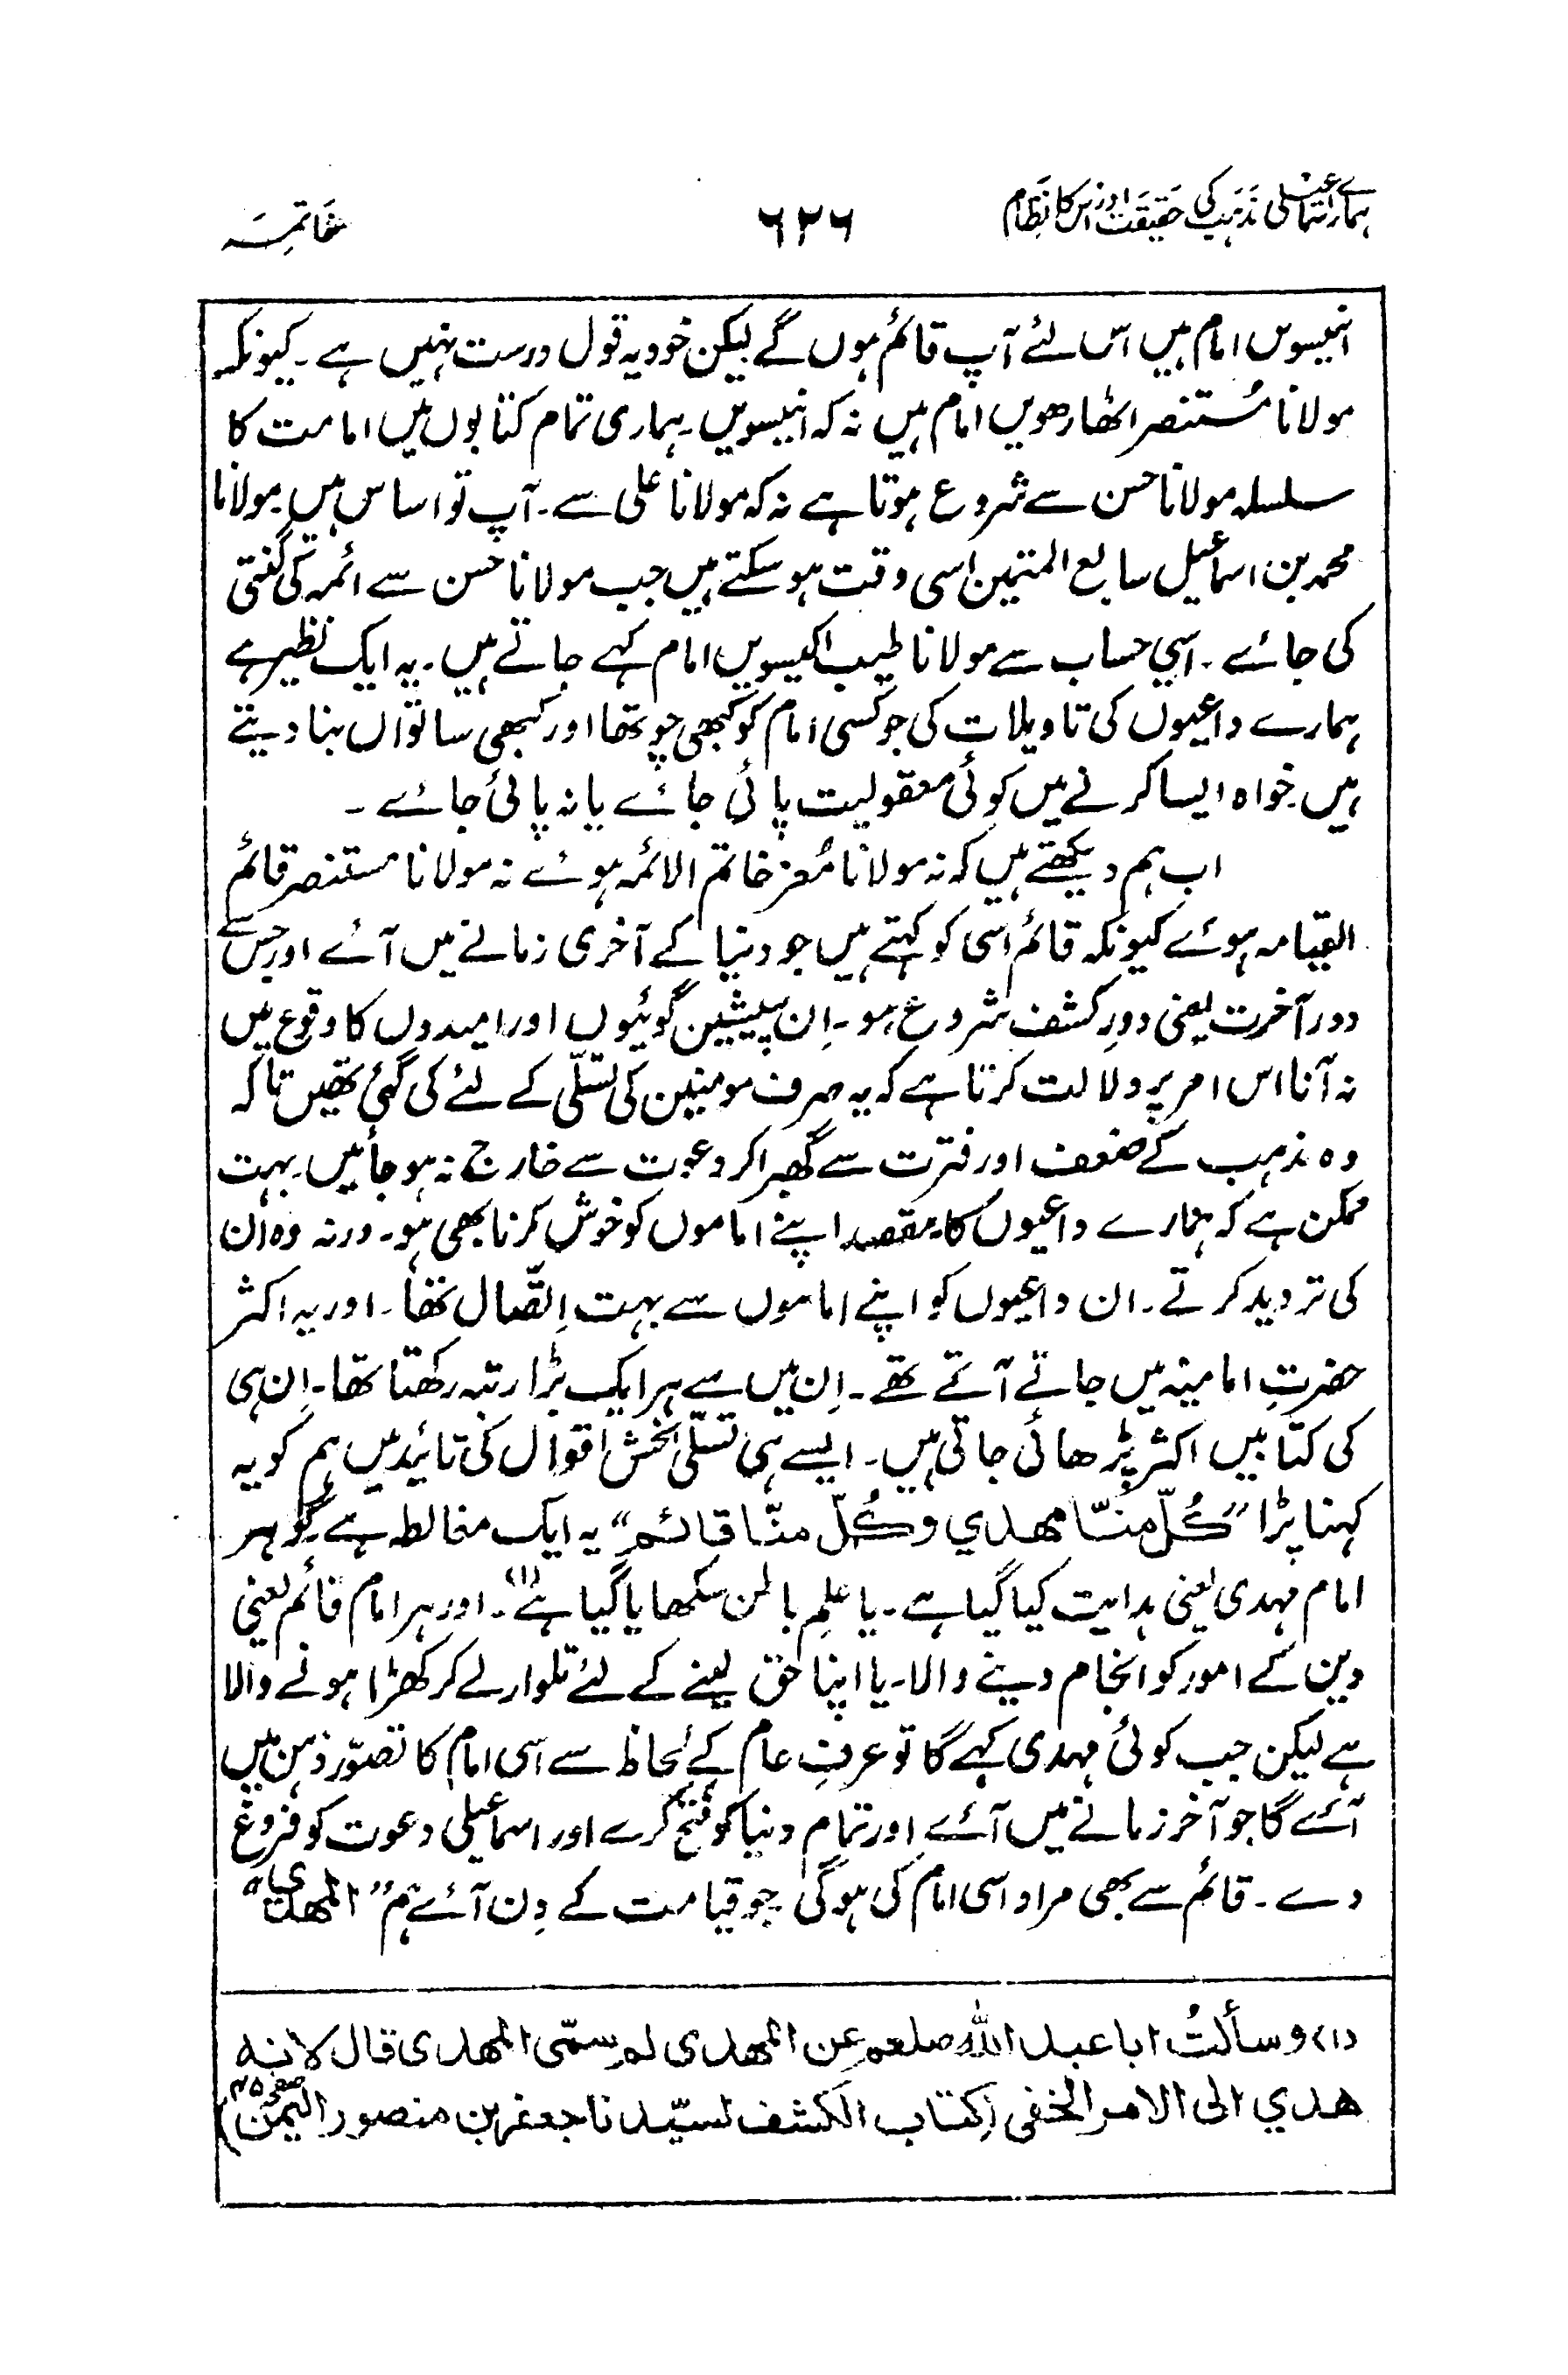 ہمارے اسماعیلی مذہب کی حقیقت اور اس کا نظام
۶۲۶
خاتمہ
انیسوس امام ہیں اس لئے آپ قائم ہوں گے لیکن خود یہ قول درست نہیں ہے ۔ کیونکہ
مولانا مُستنصر اٹھارھویں امام ہیں نہ کہ انیسویں ۔ ہماری تمام کتابوں میں امامت کا
سلسلہ مولانا حسن سے شروع ہوتا ہے نہ کہ مولانا علی سے ۔ آپ تو اساس ہیں ۔ مولانا
محمد بن اسماعیل سابع المتمین اسی وقت ہو سکتے ہیں جب مولانا حسن سے ائمہ کی گنتی
کی جائے ۔ اسی حساب سے مولانا طیب اکیسویں امام کہے جاتے ہیں ۔ یہ ایک نظیر ہے
ہمارے داعیوں کی تاویلات کی جو کسی امام کو کبھی چوتھا اور کبھی ساتواں بنا دیتے
ہیں خواہ ایسا کرنے میں کوئی معقولیت پائی جائے یا نہ پائی جائے ۔
اب ہم دیکھتے ہیں کہ نہ مولانا مُعز خاتم الائمہ ہوئے نہ مولانا مستنصر قائم
القیامہ ہوئے کیونکہ قائم اسی کو کہتے ہیں جو دنیا کے آخری زمانے میں آئے اور جس سے
دور آخرت یعنی دورِ کشف شروع ہو ۔ اِن پیشین گوئیوں اور امیدوں کا وقوع میں
نہ آنا اس امر پر دلالت کرتا ہے کہ یہ صرف مومنین کی تسلّی کے لئے کی گئی تھیں تاکہ
وہ مذہب کے ضعف اور فترت سے گھبرا کر دعوت سے خارج نہ ہو جائیں بہت
ممکن ہے کہ ہمارے داعیوں کا مقصد اپنے اماموں کو خوش کرنا بھی ہو ۔ ورنہ وہ اُن
کی تردید کرتے ۔ ان داعیوں کو اپنے اماموں سے بہت اِتّصال تھا ۔ اور یہ اکثر
حضرتِ امامیّہ میں جاتے آتے تھے ۔ اِن میں سے ہر ایک بڑا رتبہ رکھتا تھا ۔ اِن ہی
کی کتابیں اکثر پڑھائی جاتی ہیں ۔ ایسے ہی تسلّی بخش اقوال کی تائید میں ہم کو یہ
کہنا پڑا ”كُلّ منّا مهدي وكُلّ منّا قائم“ یہ ایک مغالطہ ہے ۔ گو ہر
امام مہدی یعنی ہدایت کیا گیا ہے ۔ یا علمِ باطن سکھایا گیا ہے (۱) ۔ اور ہر امام قائم یعنی
دین کے امور کو انجام دینے والا ۔ یا اپنا حق لینے کے لئے تلوار لے کر کھڑا ہونے والا
ہے لیکن جب کوئی مہدی کہے گا تو عرفِ عام کے لحاظ سے اسی امام کا تصوّر ذہن میں
آئے گا جو آخر زمانے میں آئے اور تمام دنیا کو فتح کرے اور اسماعیلی دعوت کو فروغ
دے ۔ قائم سے بھی مراد اسی امام کی ہوگی جو قیامت کے دِن آئے ہم ”المهدي“
(۱) وسألتُ ابا عبد الله صلعم عن المهدى لم سمّى المهدى قال لانه
هدي الى الامر الخفى (كتاب الكشف لسيّدنا جعفر بن منصور اليمن)